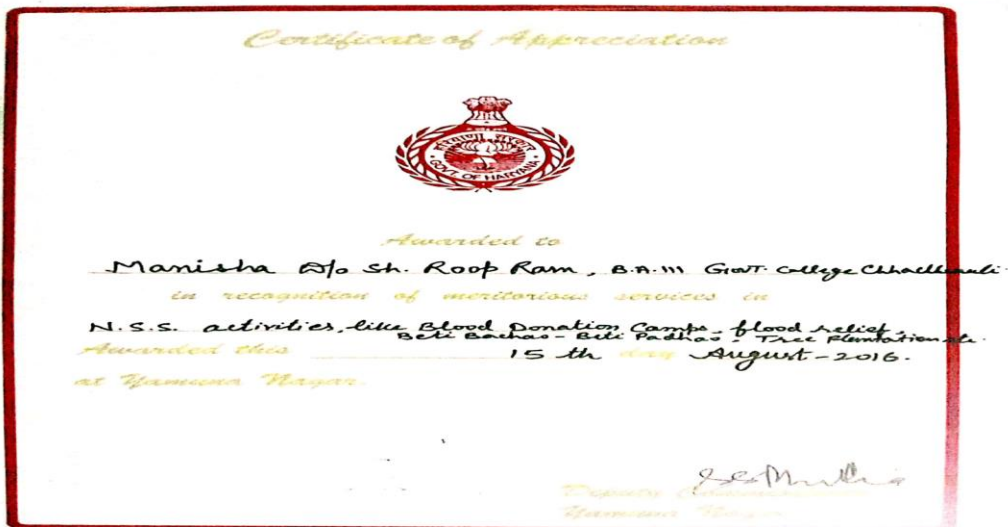 Certificate of Appreciation
हरियाणा सरकार
GOVT. OF HARYANA
Awarded to
Manisha D/o Sh. Roop Ram, B.A.III Govt. College Chhachhrauli
in recognition of meritorious services in
N.S.S. activities, like Blood Donation Camps, flood relief,
Beti Bachao - Beti Padhao, Tree Plantation etc.
Awarded this 15 th day August - 2016.
at Yamuna Nagar.
Deputy Commissioner
Yamuna Nagar